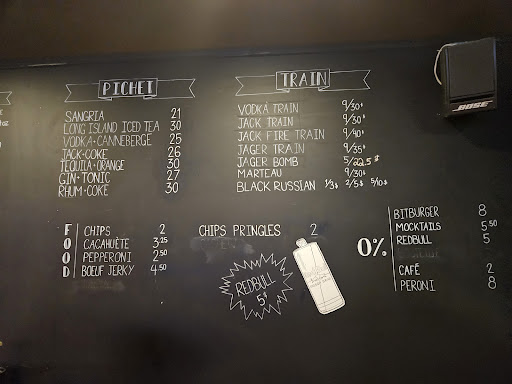 PICHET
SANGRIA 21
LONG ISLAND ICED TEA 30
VODKA•CANNEBERGE 25
JACK•COKE 26
TEQUILA•ORANGE 30
GIN•TONIC 27
RHUM•COKE 30
TRAIN
VODKA TRAIN 9/30$
JACK TRAIN 9/30$
JACK FIRE TRAIN 9/40$
JAGER TRAIN 9/35$
JAGER BOMB 5/22.5$
MARTEAU 9/30$
BLACK RUSSIAN 1/3$ 2/5$ 5/10$
FOOD
CHIPS 2
CACAHUÈTE 3.25
PEPPERONI 2.50
BŒUF JERKY 4.50
CHIPS PRINGLES 2
REDBULL
5$
0%
BITBURGER 8
MOCKTAILS 5.50
REDBULL 5
CAFÉ 2
PERONI 8
BOSE